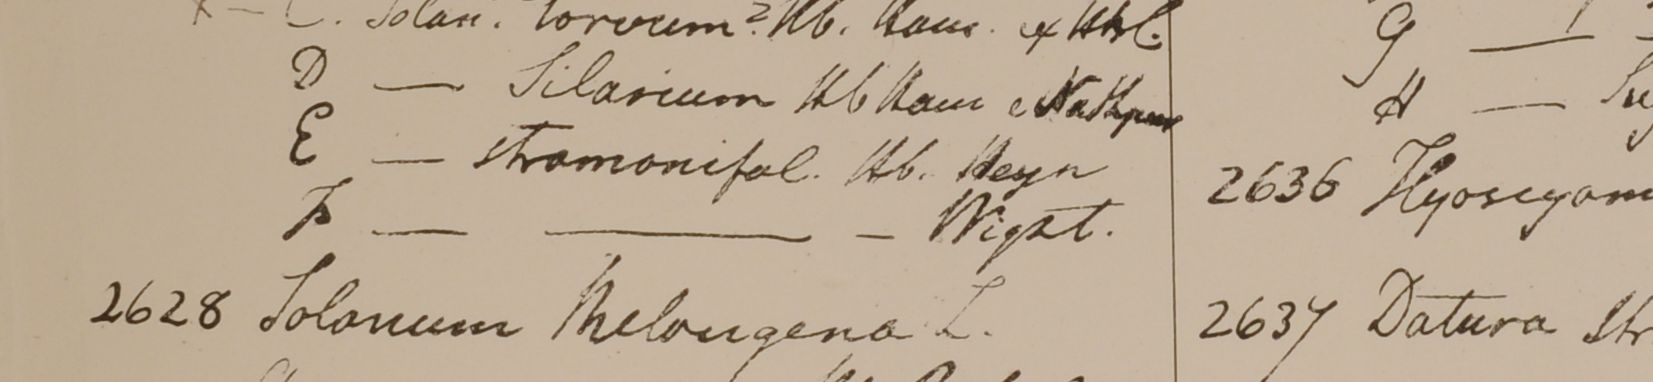 C. Solan. torvum? Hb. Ham.
D — Silarium Hb Ham e Nathpur
E — stramonifol. Hb. Heyn
F — — — Wight.
2628 Solanum Melongena L.
G —
H —
2636 Hyoscyam
2637 Datura Str